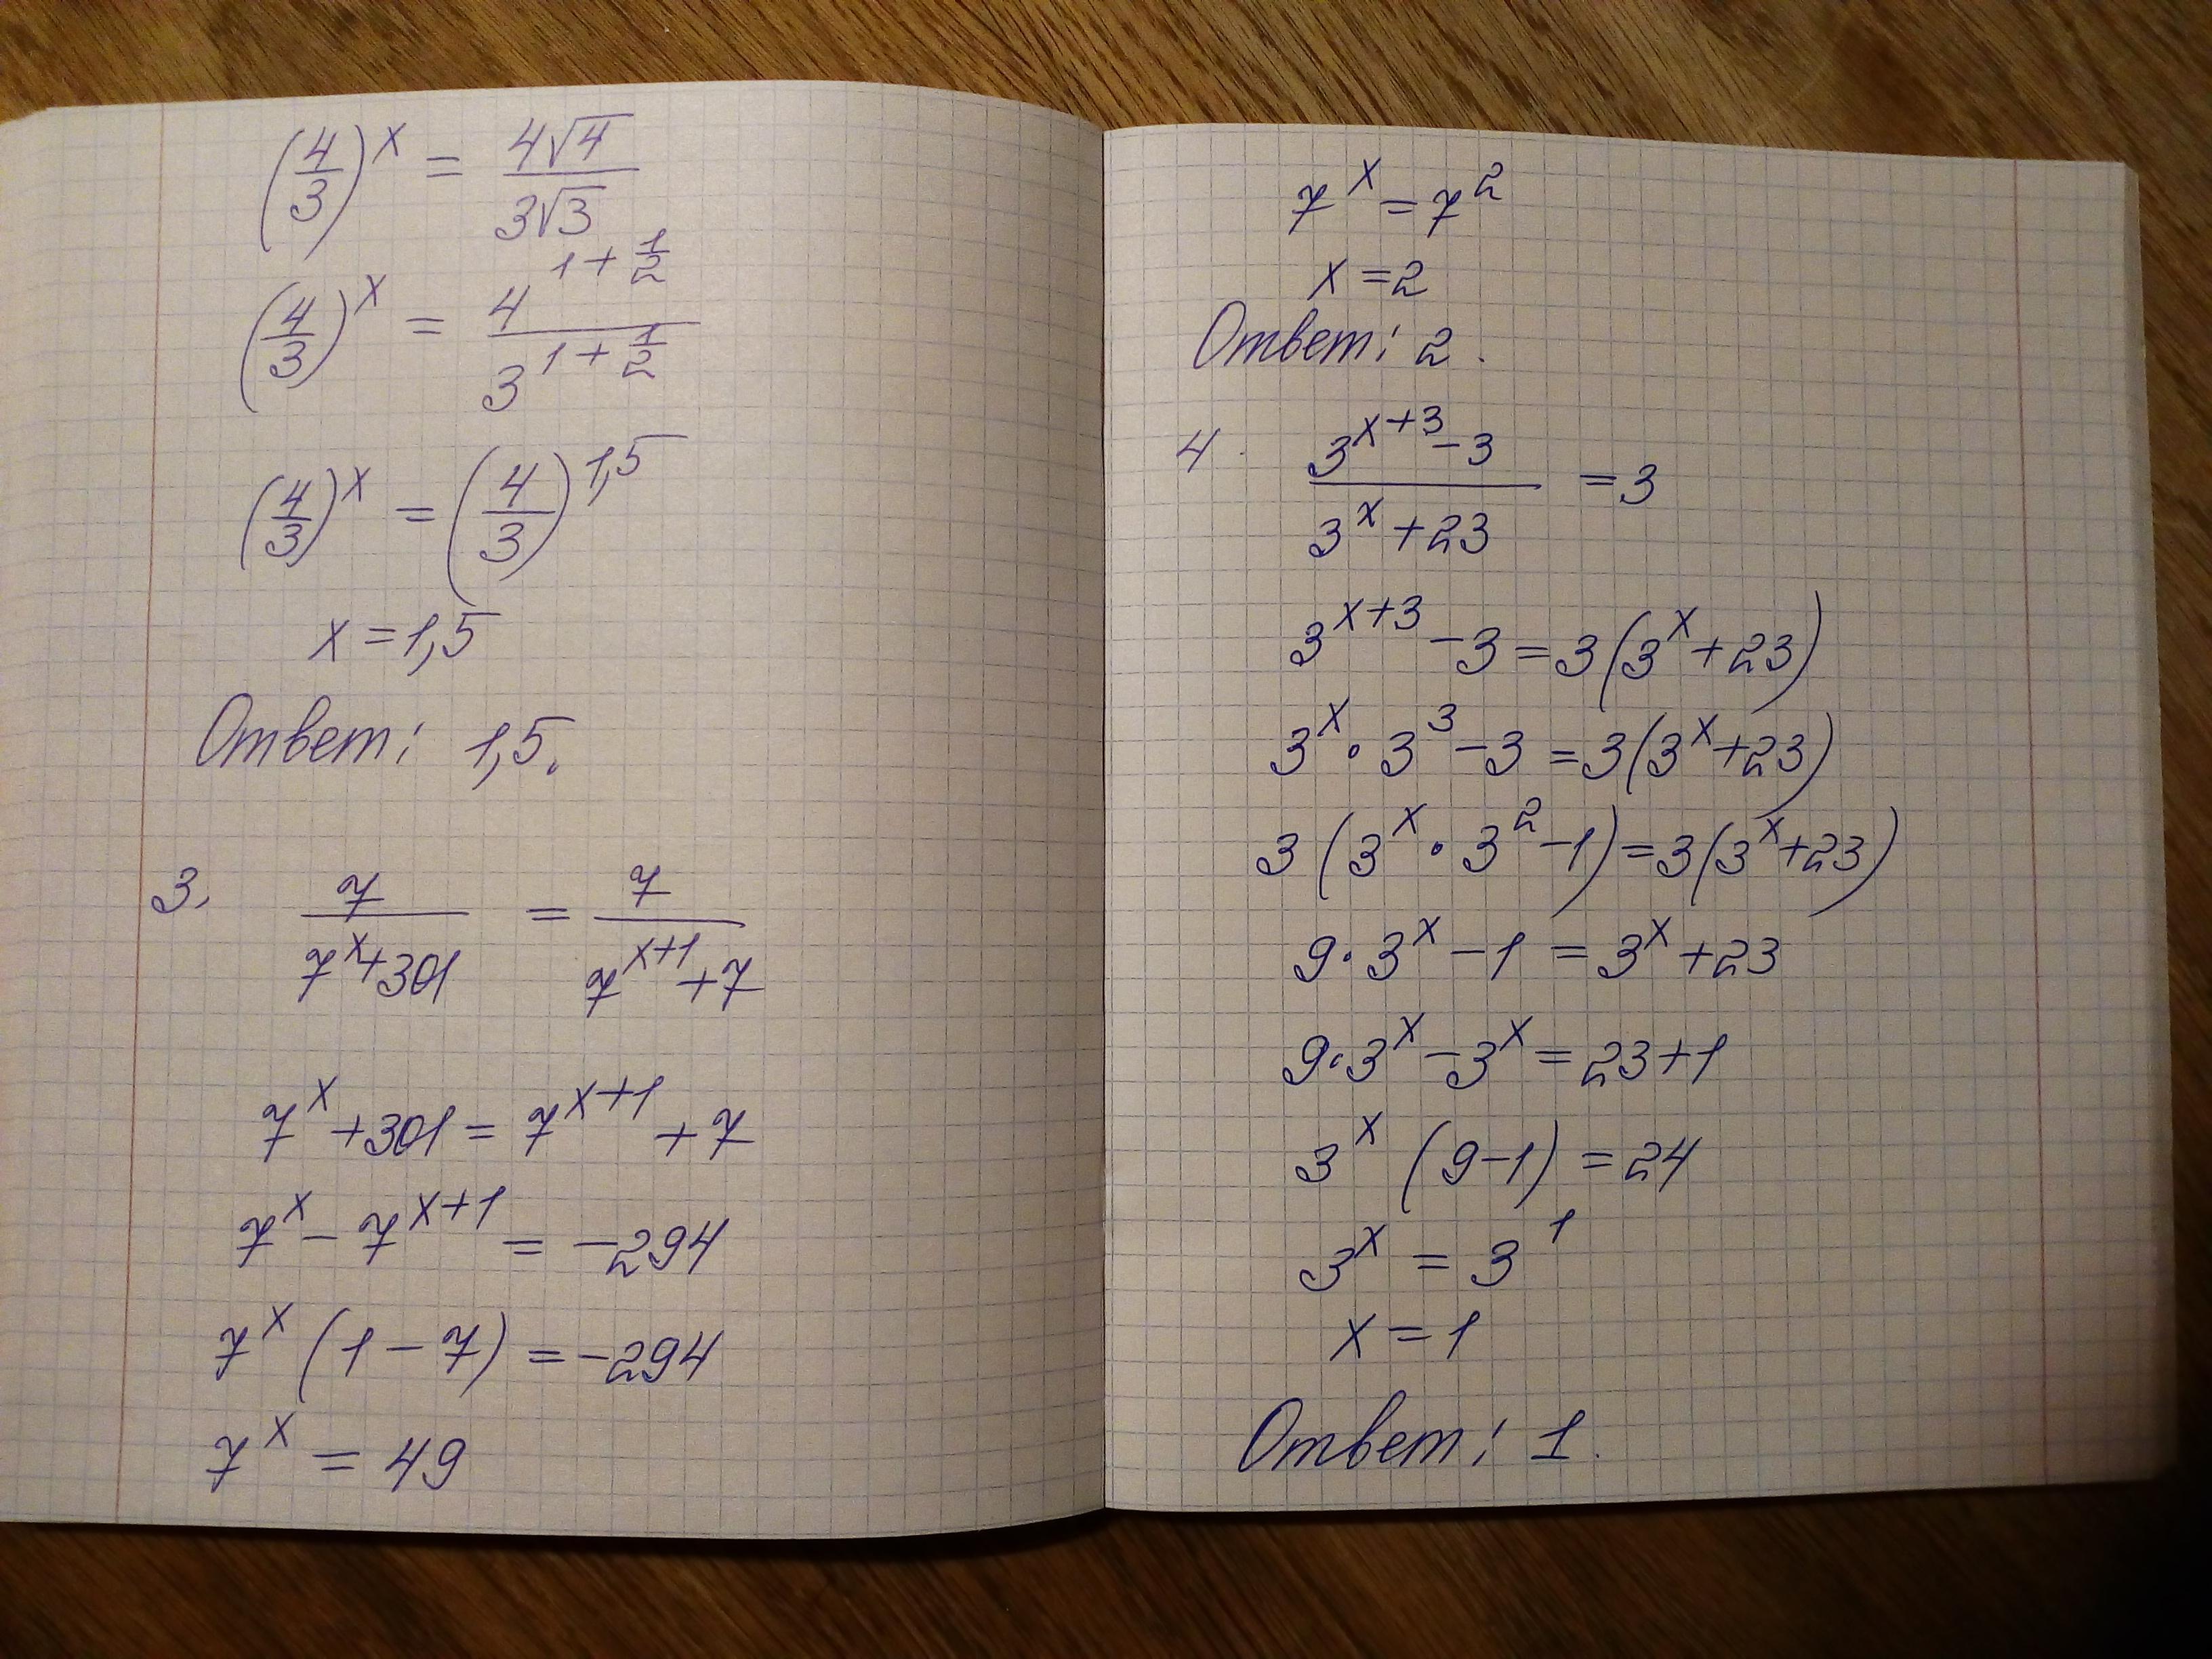 (4/3)^x = 4√4 / 3√3
(4/3)^x = 4^(1+1/2) / 3^(1+1/2)
(4/3)^x = (4/3)^1,5
x = 1,5
Ответ: 1,5.
3. 7 / (7^x+301) = 7 / (7^(x+1)+7)
7^x + 301 = 7^(x+1) + 7
7^x - 7^(x+1) = -294
7^x (1 - 7) = -294
7^x = 49
7^x = 7^2
x = 2
Ответ: 2.
4. (3^(x+3) - 3) / (3^x + 23) = 3
3^(x+3) - 3 = 3(3^x + 23)
3^x · 3^3 - 3 = 3(3^x + 23)
3(3^x · 3^2 - 1) = 3(3^x + 23)
9 · 3^x - 1 = 3^x + 23
9 · 3^x - 3^x = 23 + 1
3^x (9 - 1) = 24
3^x = 3^1
x = 1
Ответ: 1.